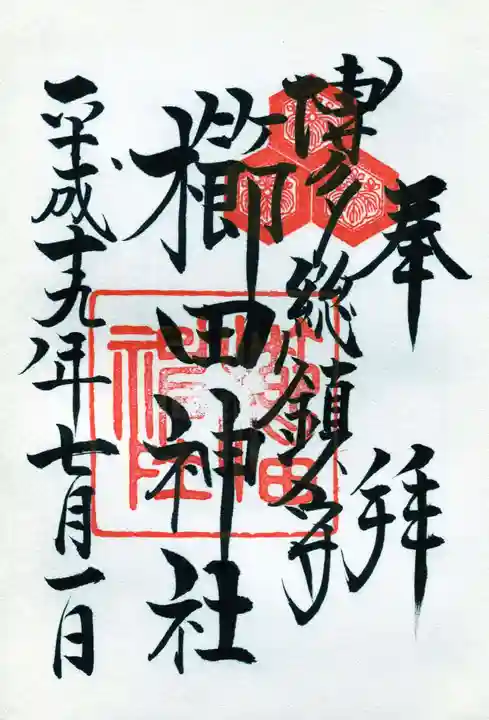 奉拝
博多総鎮守
櫛田神社
平成十九年七月一日
櫛田神社